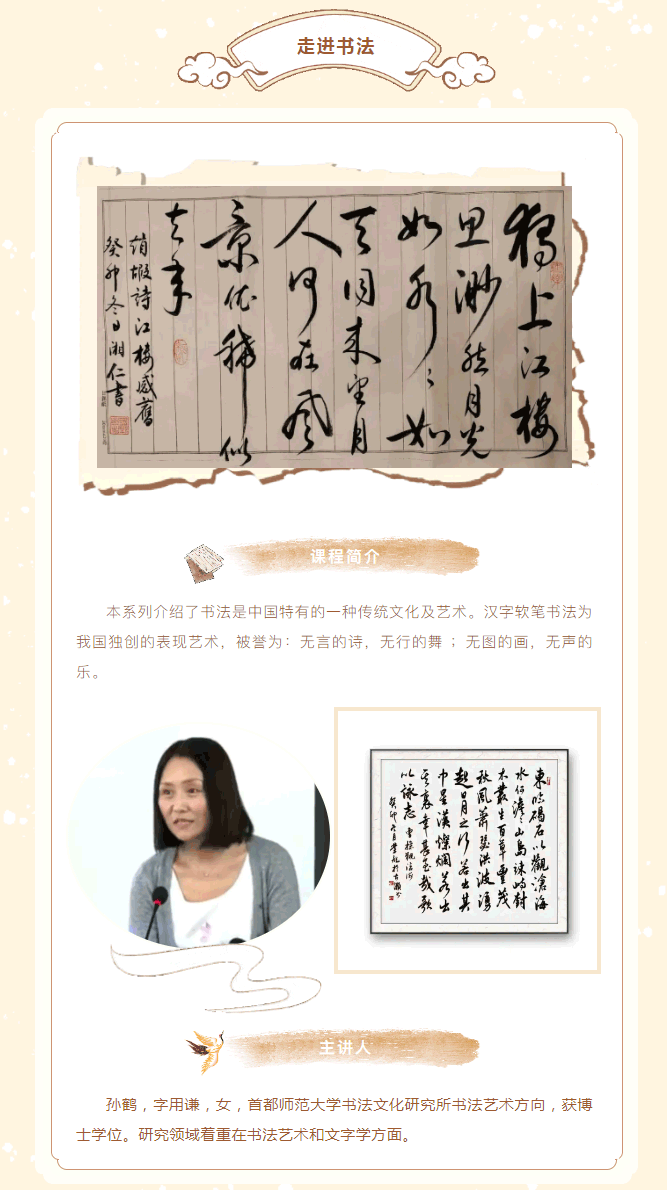 走进书法
獨上江樓
思渺然月光
如水々如
天同来望月
人何在風
景依稀似
去年
趙嘏詩江楼感舊
癸卯冬月湘仁書
课程简介
本系列介绍了书法是中国特有的一种传统文化及艺术。汉字软笔书法为
我国独创的表现艺术，被誉为：无言的诗，无行的舞 ；无图的画，无声的
乐。
東臨碣石以觀滄海
水何澹々山島竦峙樹
木叢生百草豐茂
秋風蕭瑟洪波湧
起日月之行若出其
中星漢燦爛若出
其裏幸甚至哉歌
以詠志 曹操觀滄海
主讲人
孙鹤，字用谦，女，首都师范大学书法文化研究所书法艺术方向，获博
士学位。研究领域着重在书法艺术和文字学方面。